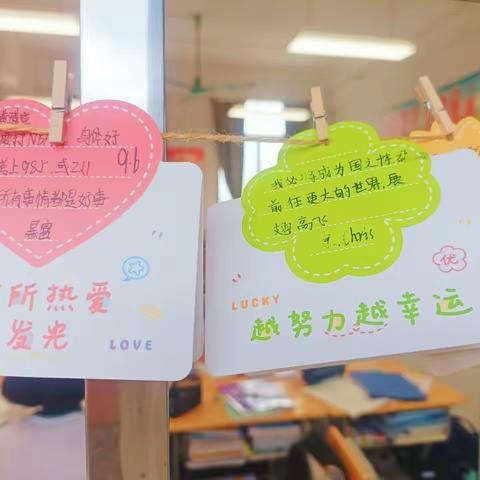 身体好
考上985.或211
9.6
所有事情都是好事
所热爱
发光
LOVE
我必将成为国之栋梁
前往更大的世界,展
翅高飞
Chris
LUCKY
优
越努力越幸运